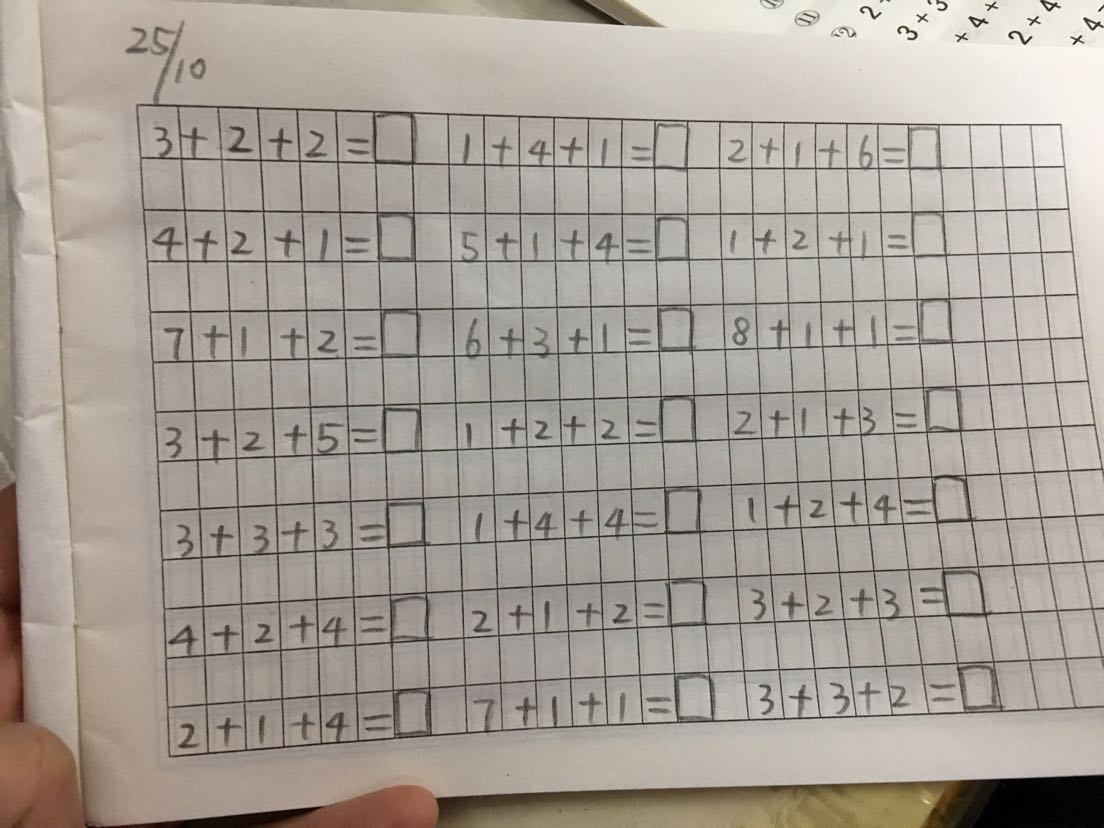 25/10
3+2+2=□ 1+4+1=□ 2+1+6=□
4+2+1=□ 5+1+4=□ 1+2+1=□
7+1+2=□ 6+3+1=□ 8+1+1=□
3+2+5=□ 1+2+2=□ 2+1+3=□
3+3+3=□ 1+4+4=□ 1+2+4=□
4+2+4=□ 2+1+2=□ 3+2+3=□
2+1+4=□ 7+1+1=□ 3+3+2=□